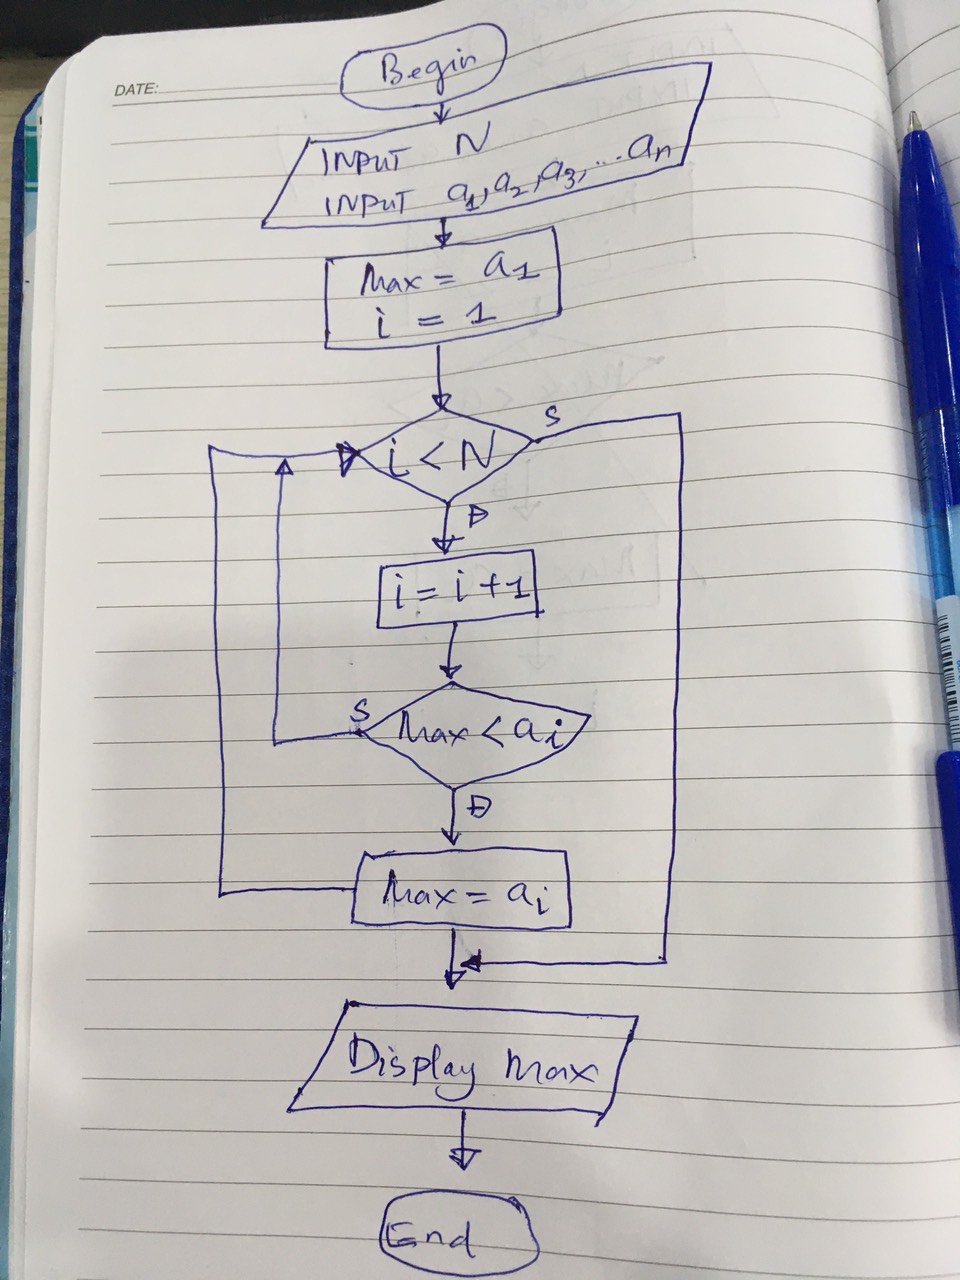 DATE:
Begin
INPUT N
INPUT a1, a2, a3, ... an
Max = a1
i = 1
i < N
S
Đ
i = i + 1
Max < ai
S
Đ
Max = ai
Display Max
End